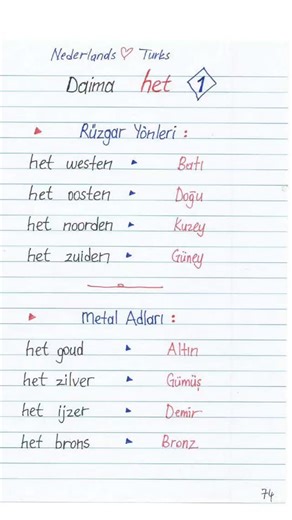 Nederlands ♡ Turks
Daima het 1
Rüzgar Yönleri :
het westen ▸ Batı
het oosten ▸ Doğu
het noorden ▸ Kuzey
het zuiden ▸ Güney
Metal Adları :
het goud ▸ Altın
het zilver ▸ Gümüş
het ijzer ▸ Demir
het brons ▸ Bronz
74